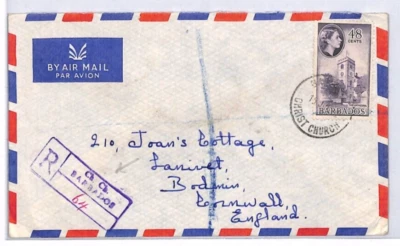 BY AIR MAIL
PAR AVION
48
CENTS
BARBADOS
CHRIST CHURCH
210, Joan's Cottage,
Lanivet,
Bodmin,
Cornwall,
England.
R
BARBADOS
64